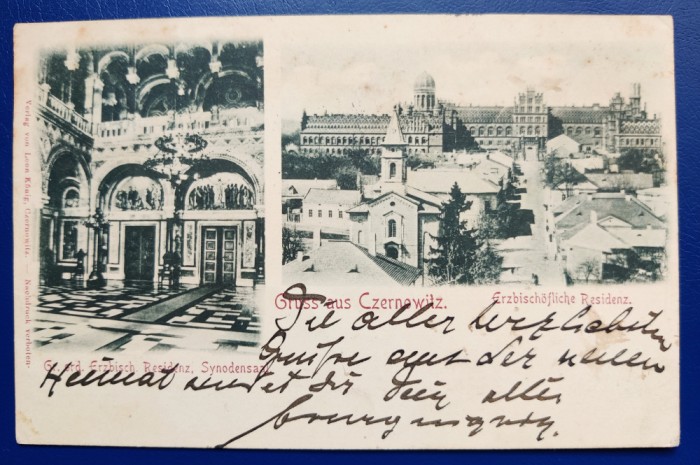 Verlag von Leon König, Czernowitz. — Nachdruck verboten.
Gruss aus Czernowitz.
Erzbischöfliche Residenz.
Gr. ord. Erzbisch. Residenz, Synodensaal.
Die aller herzlichsten
Grüsse aus der neuen
Heimat sendet dir dein alter